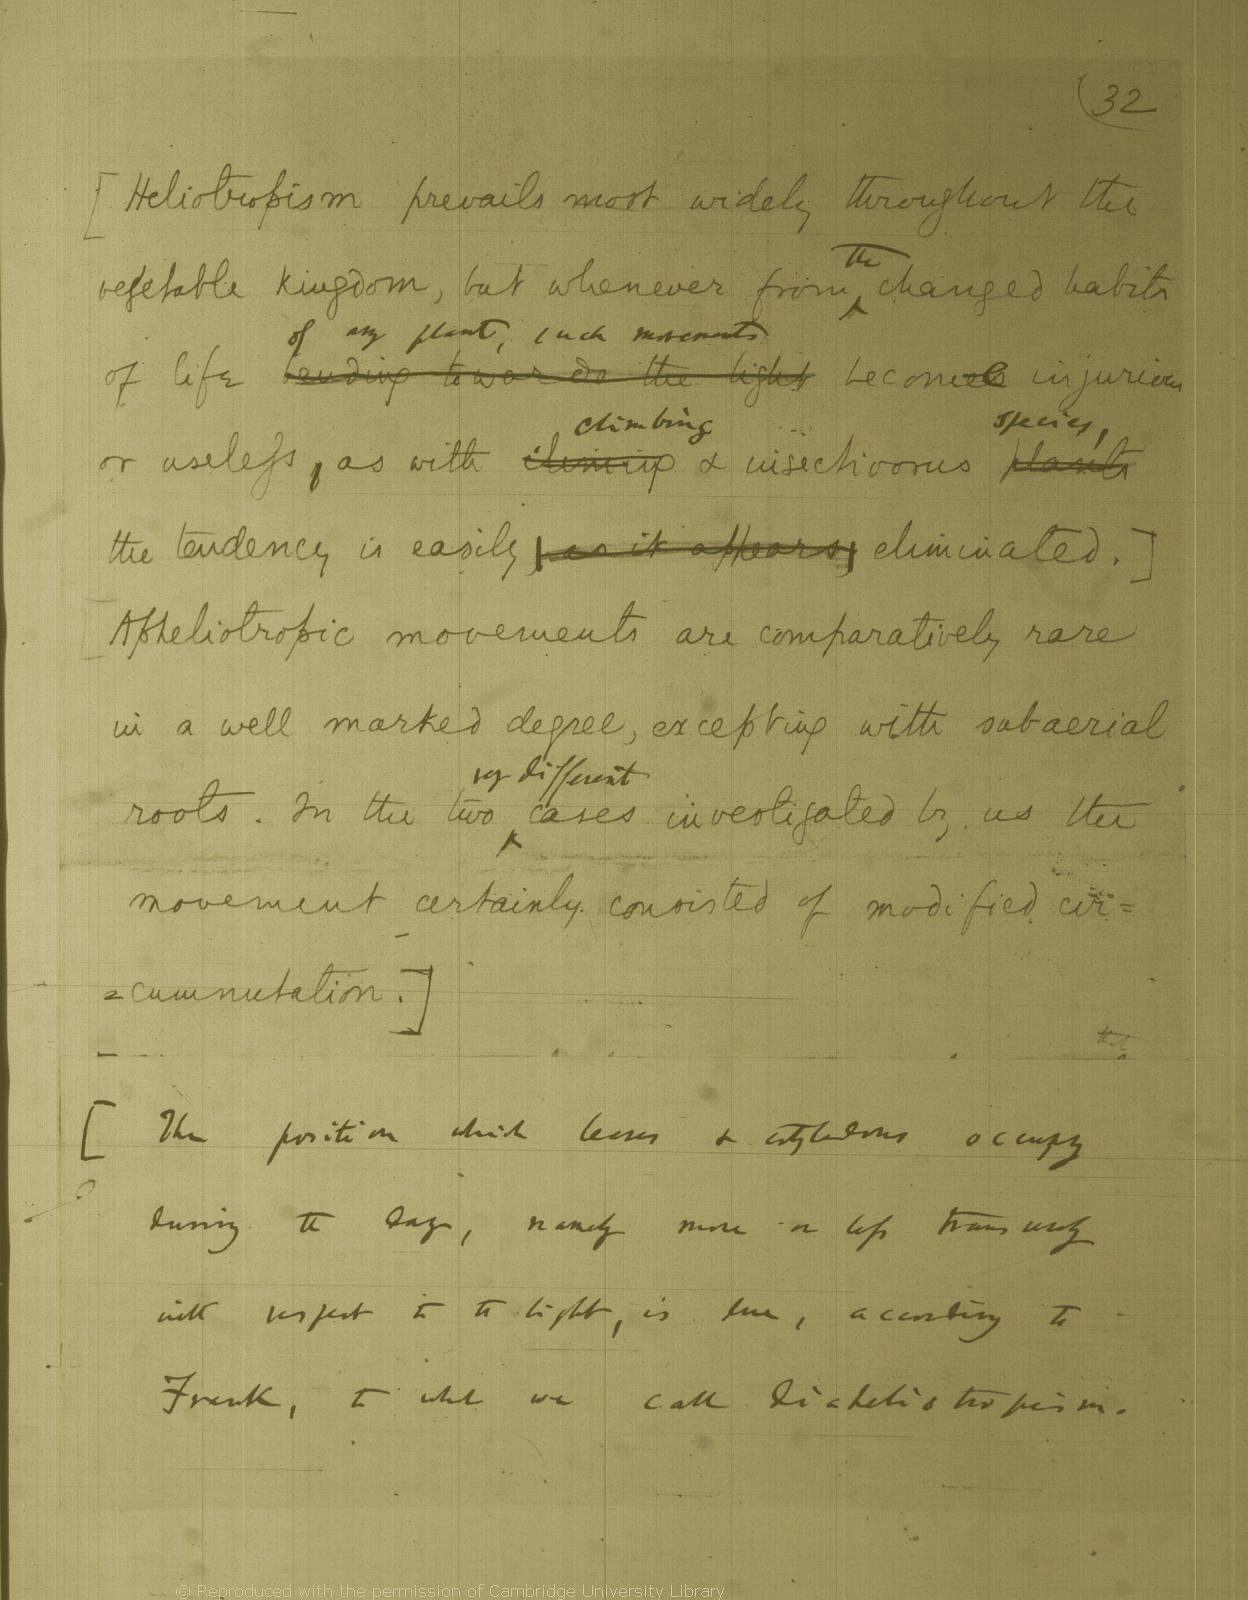 (32
[Heliotropism prevails most widely throughout the
the
vegetable kingdom, but whenever from changed habits
of any plant, such movements
of life bending towards the light become injurious
climbing species,
or useless, as with climing & insectivorus plants
the tendency is easily, as it appears, eliminated.]
Apheliotropic movements are comparatively rare
in a well marked degree, excepting with subaerial
very different
roots. In the two cases investigated by us the
movement certainly consisted of modified cir=
=cumnutation.]
that
[The position which leaves & cotyledons occupy
during the day, namely more or less transversely
with respect to the light, is due, according to
Frank, to what we call diaheliotropism.
© Reproduced with the permission of Cambridge University Library